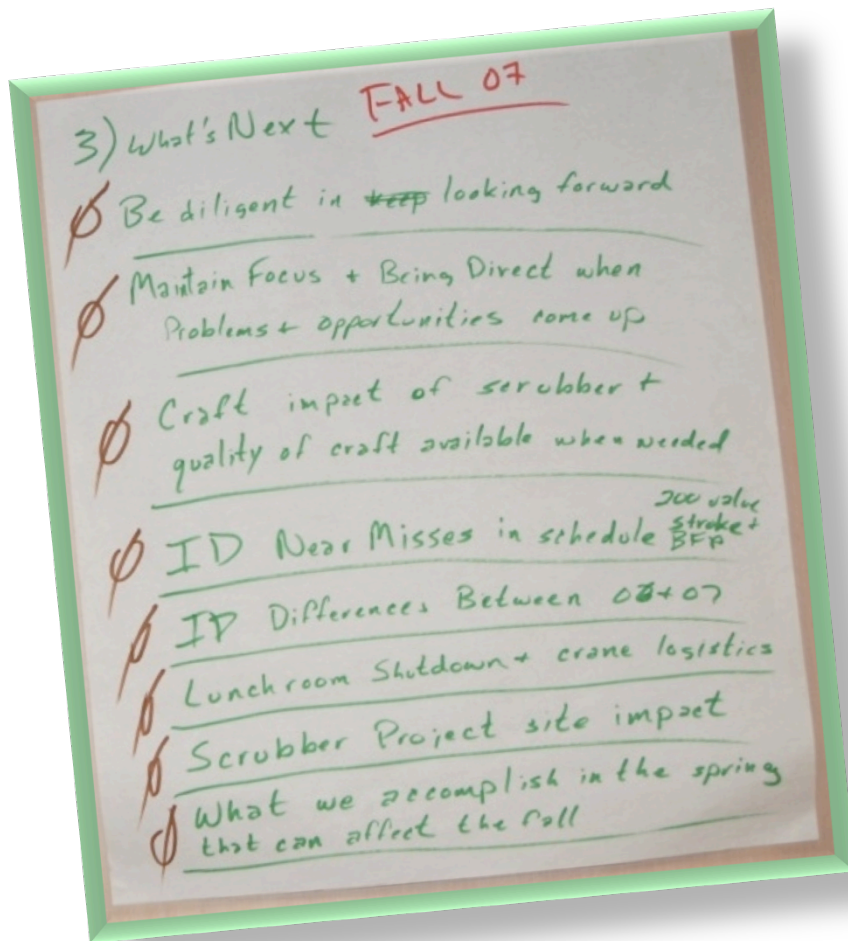 3) What's Next FALL 07
Be diligent in keep looking forward
Maintain Focus + Being Direct when
Problems + opportunities come up
Craft impact of scrubber +
quality of craft available when needed
ID Near Misses in schedule
stroke +
BFP
ID Differences Between 06 + 07
Lunchroom Shutdown + crane logistics
Scrubber Project site impact
What we accomplish in the spring
that can affect the fall